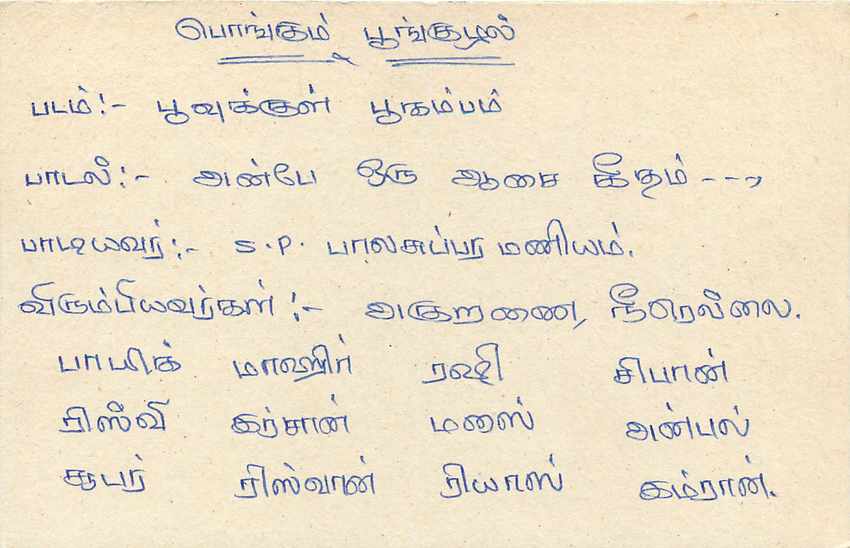 பொங்கும் பூங்குழல்
படம்:- பூவுக்குள் பூகம்பம்
பாடல்:- அன்பே ஒரு ஆசை கீதம் ---,
பாடியவர்:- S.P. பாலசுப்பர மணியம்.
விரும்பியவர்கள்:- அகுறணை, நீரெல்லை.
பாயிக் மாஹிர் ரஷி சிபான்
ரிஸ்வி இர்சான் மனாஸ் அன்பல்
சூபர் ரிஸ்வான் ரியாஸ் இம்ரான்.